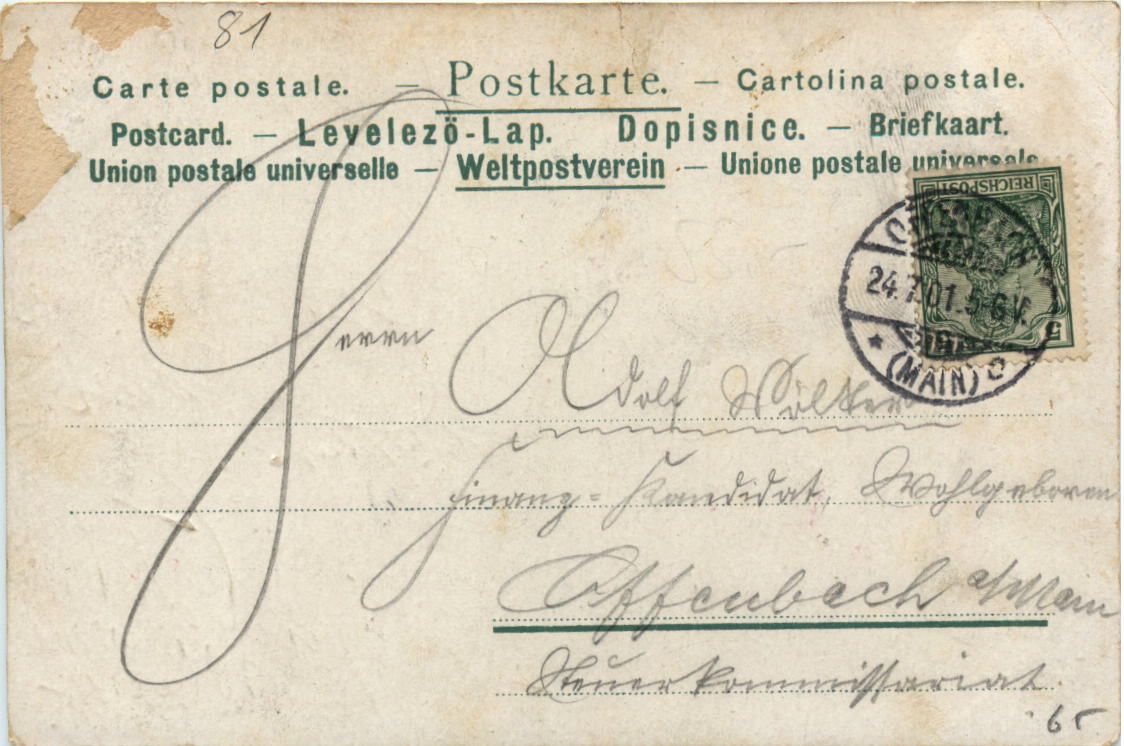 81
Carte postale. — Postkarte. — Cartolina postale.
Postcard. — Levelezö-Lap. Dopisnice. — Briefkaart.
Union postale universelle — Weltpostverein — Unione postale universale
REICHSPOST
5
24.7.01. 5-6V.
* (MAIN) 2
Herrn Adolf Wölker
Finanz-Kandidat, Wohlgeboren
Offenbach a/Main
Steuerkommissariat.
65